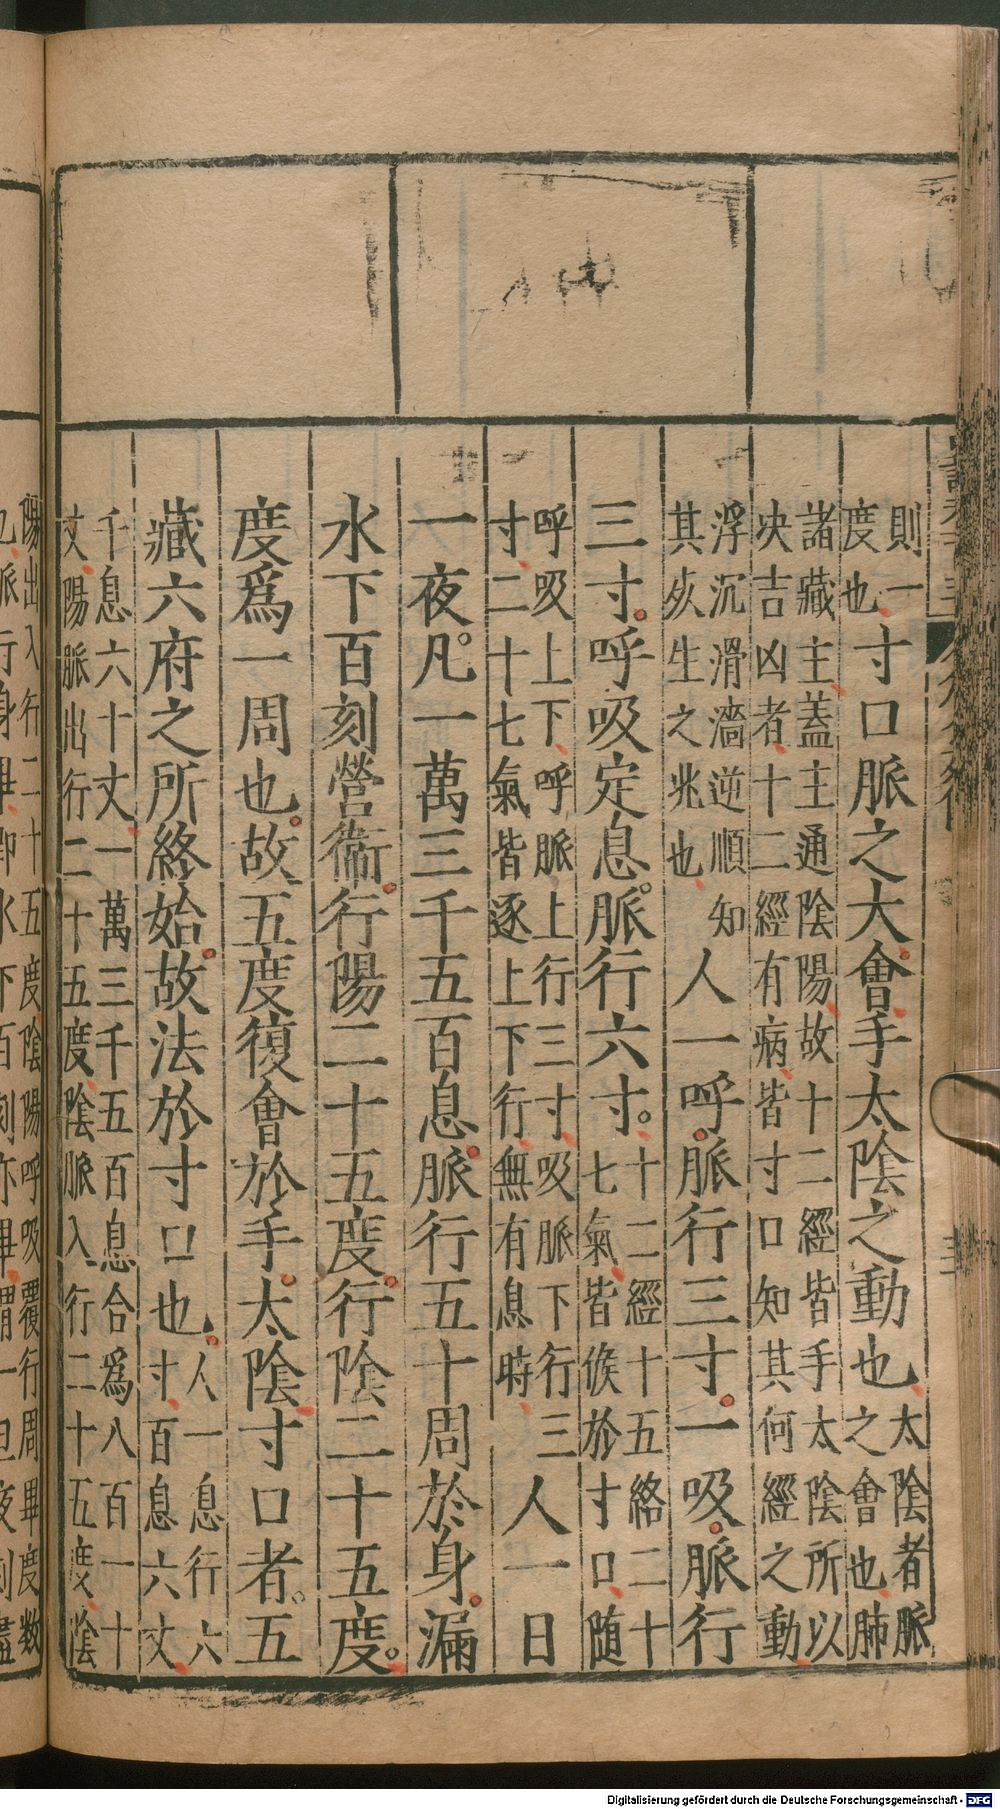 則一
度也寸口脈之大會手太陰之動也太陰者脈
之會也肺
諸藏主蓋主通陰陽故十二經皆手太陰所以
决吉凶者十二經有病皆寸口知其何經之動
浮沉滑濇逆順知
其死生之兆也人一呼脈行三寸一吸脈行
三寸呼吸定息脈行六寸十二經十五絡二十
七氣皆候於寸口随
呼吸上下呼脈上行三寸吸脈下行三
寸二十七氣皆逐上下行無有息時人一日
一夜凡一萬三千五百息脈行五十周於身漏
水下百刻營衞行陽二十五度行陰二十五度
度爲一周也故五度復會於手太陰寸口者五
藏六府之所終始故法於寸口也人一息行六
寸百息六丈
千息六十丈一萬三千五百息合爲八百一十
丈陽脈出行二十五度陰脈入行二十五度陰
陽出入行二十五度陰陽呼吸覆行周畢度数
也脈行身畢即水下百刻亦畢謂一日夜刻盡
Digitalisierung gefördert durch die Deutsche Forschungsgemeinschaft - DFG